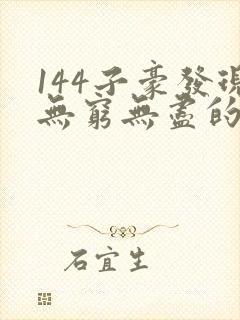 144子豪發現
無窮無盡的
石宜生